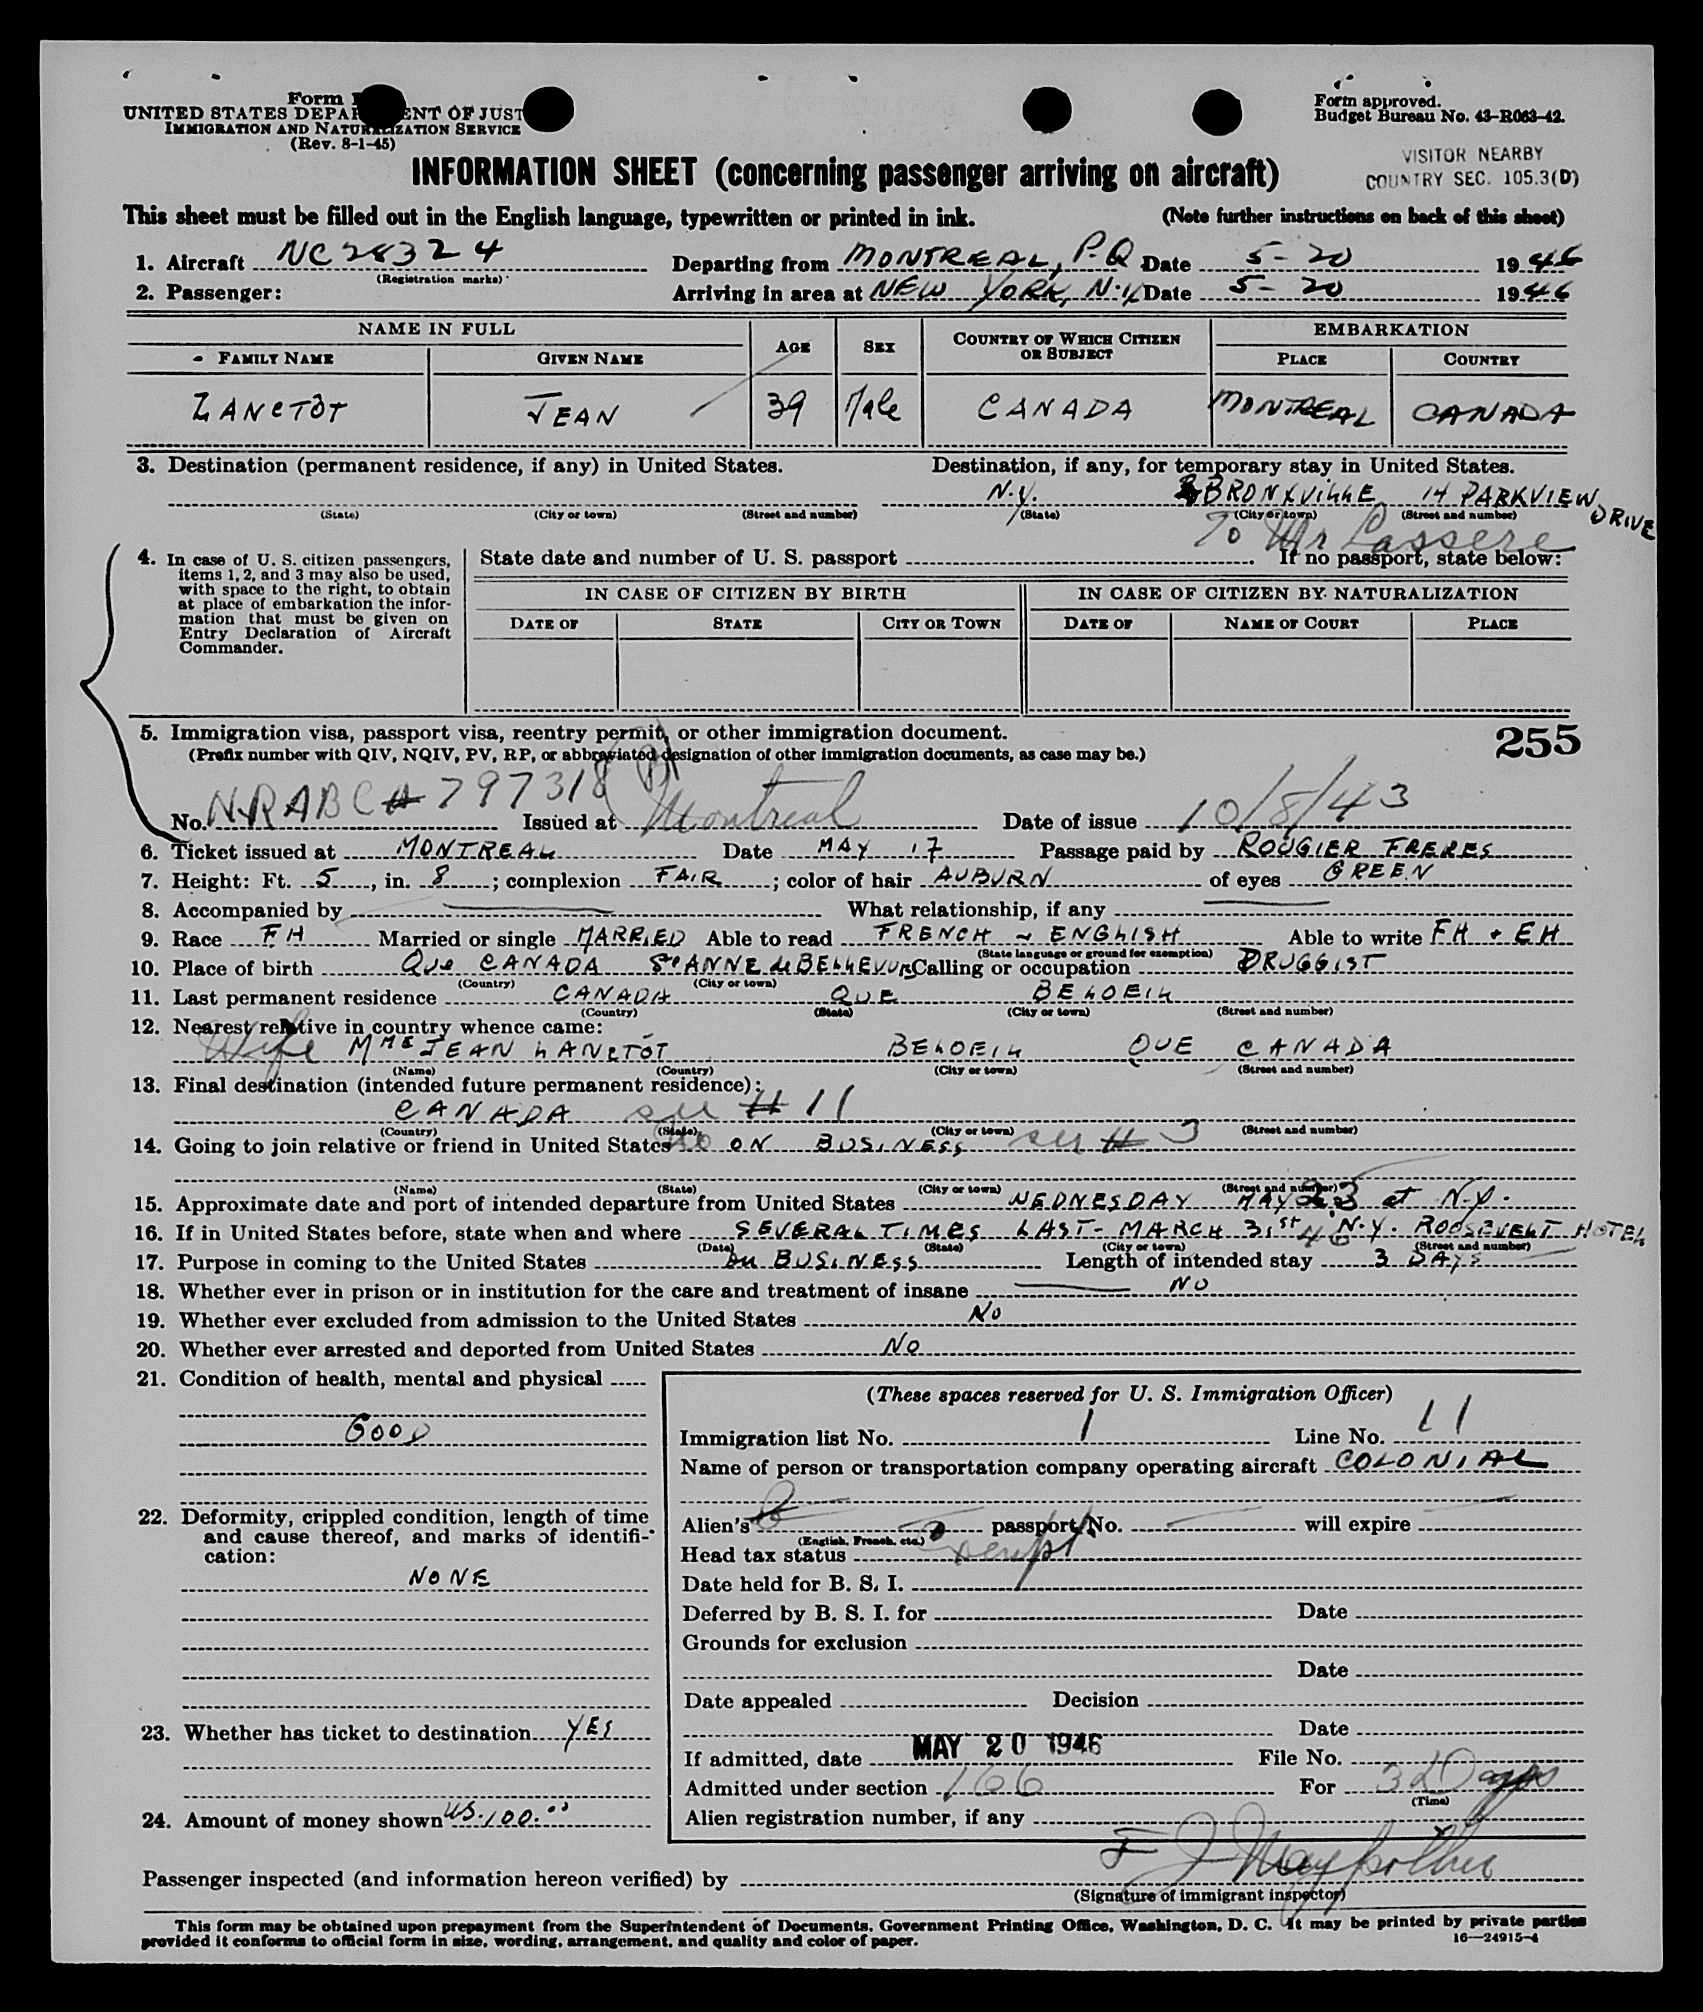 Form I
UNITED STATES DEPA ENT OF JUST
IMMIGRATION AND NATURALIZATION SERVICE
(Rev. 8-1-45)
Form approved.
Budget Bureau No. 43-R063-42.
VISITOR NEARBY
COUNTRY SEC. 105.3(D)
INFORMATION SHEET (concerning passenger arriving on aircraft)
This sheet must be filled out in the English language, typewritten or printed in ink. (Note further instructions on back of this sheet)
1. Aircraft NC28324 Departing from MONTREAL, P.Q Date 5-20 1946
(Registration marks)
2. Passenger: Arriving in area at NEW YORK, N.Y. Date 5-20 1946
NAME IN FULL AGE SEX COUNTRY OF WHICH CITIZEN OR SUBJECT EMBARKATION
FAMILY NAME GIVEN NAME PLACE COUNTRY
LANCTÔT JEAN 39 Male CANADA MONTREAL CANADA
3. Destination (permanent residence, if any) in United States. Destination, if any, for temporary stay in United States.
N.Y. BRONXVILLE 14 PARKVIEW DRIVE
(State) (City or town) (Street and number) (State) (City or town) (Street and number)
To Mr Lassere
4. In case of U. S. citizen passengers, items 1, 2, and 3 may also be used, with space to the right, to obtain at place of embarkation the information that must be given on Entry Declaration of Aircraft Commander.
State date and number of U. S. passport . If no passport, state below:
IN CASE OF CITIZEN BY BIRTH IN CASE OF CITIZEN BY NATURALIZATION
DATE OF STATE CITY OR TOWN DATE OF NAME OF COURT PLACE
5. Immigration visa, passport visa, reentry permit, or other immigration document. 255
(Prefix number with QIV, NQIV, PV, RP, or abbreviated designation of other immigration documents, as case may be.)
No. NRABC# 797318 Issued at Montreal Date of issue 10/8/43
6. Ticket issued at MONTREAL Date MAY 17 Passage paid by ROUGIER FRERES
7. Height: Ft. 5, in. 8; complexion FAIR; color of hair AUBURN of eyes GREEN
8. Accompanied by What relationship, if any
9. Race FH Married or single MARRIED Able to read FRENCH + ENGLISH Able to write FH + EH
(State language or ground for exemption)
10. Place of birth Que CANADA Ste ANNE de BELLEVUE Calling or occupation DRUGGIST
(Country) (City or town)
11. Last permanent residence CANADA QUE BELOEIL
(Country) (State) (City or town) (Street and number)
12. Nearest relative in country whence came:
Wife Mme JEAN LANCTÔT BELOEIL QUE CANADA
(Name) (Country) (City or town) (Street and number)
13. Final destination (intended future permanent residence):
CANADA see # 11
(Country) (State) (City or town) (Street and number)
14. Going to join relative or friend in United States no ON BUSINESS see # 3
(Name) (State) (City or town) (Street and number)
15. Approximate date and port of intended departure from United States WEDNESDAY MAY 23 at N.Y.
16. If in United States before, state when and where SEVERAL TIMES LAST - MARCH 31st 46 N.Y. ROOSEVELT HOTEL
(Date) (State) (City or town) (Street and number)
17. Purpose in coming to the United States ON BUSINESS Length of intended stay 3 DAYS
18. Whether ever in prison or in institution for the care and treatment of insane NO
19. Whether ever excluded from admission to the United States No
20. Whether ever arrested and deported from United States No
21. Condition of health, mental and physical
GOOD
22. Deformity, crippled condition, length of time and cause thereof, and marks of identification:
NONE
23. Whether has ticket to destination YES
24. Amount of money shown US.100.00
(These spaces reserved for U. S. Immigration Officer)
Immigration list No. 1 Line No. 11
Name of person or transportation company operating aircraft COLONIAL
Alien's passport No. will expire
(English, French, etc.)
Head tax status Exempt
Date held for B. S. I.
Deferred by B. S. I. for Date
Grounds for exclusion
Date
Date appealed Decision
Date
If admitted, date MAY 20 1946 File No.
Admitted under section 166 For 3 Days
(Time)
Alien registration number, if any
Passenger inspected (and information hereon verified) by
(Signature of immigrant inspector)
This form may be obtained upon prepayment from the Superintendent of Documents, Government Printing Office, Washington, D. C. It may be printed by private parties
provided it conforms to official form in size, wording, arrangement, and quality and color of paper.
16—24915-4